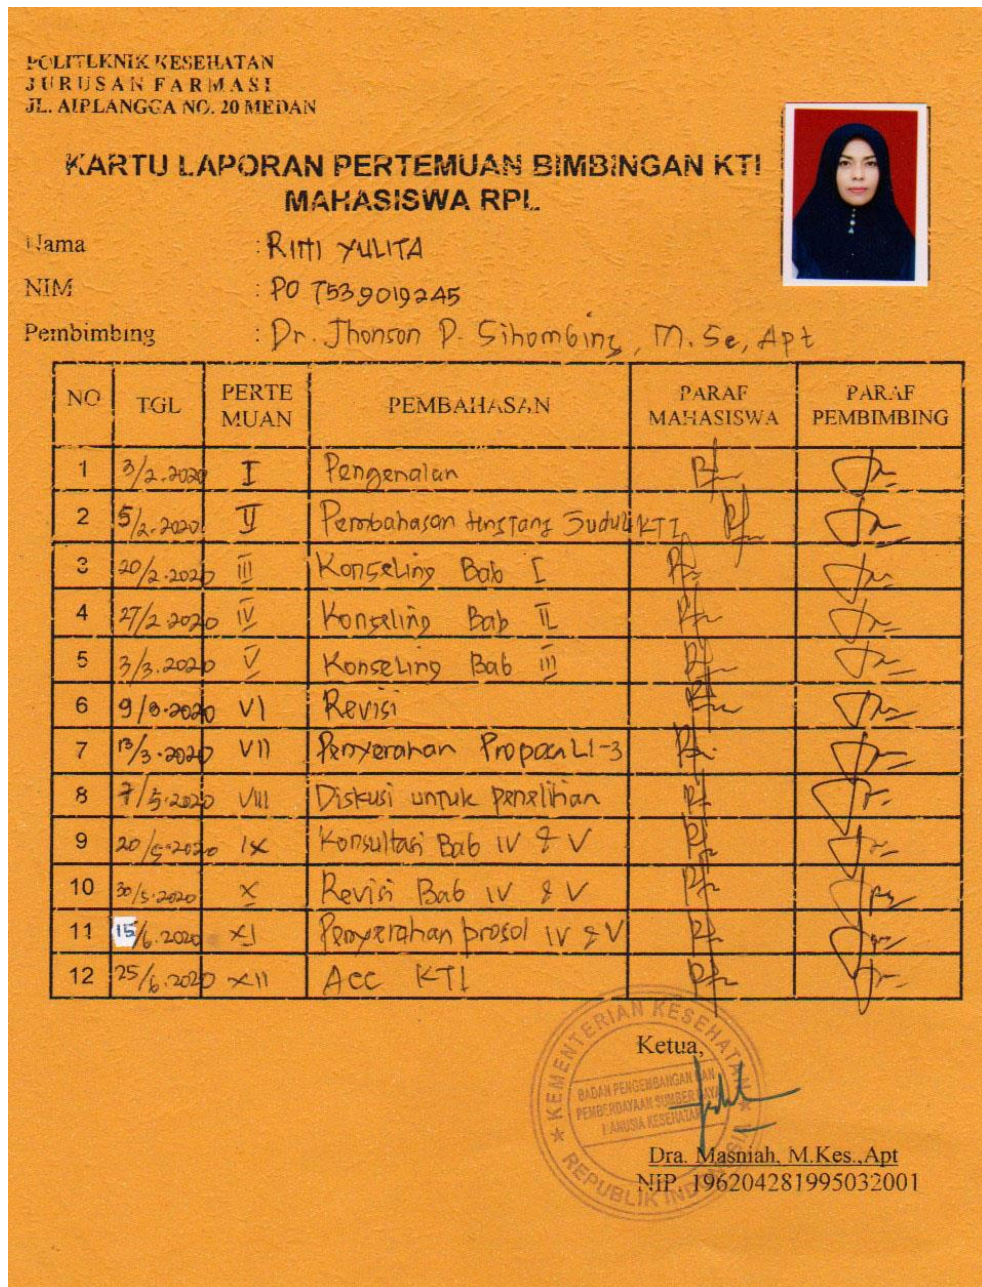 POLITEKNIK KESEHATAN
JURUSAN FARMASI
JL. AIRLANGGA NO. 20 MEDAN
KARTU LAPORAN PERTEMUAN BIMBINGAN KTI
MAHASISWA RPL
Nama : RITTI YULITA
NIM : PO 7539019245
Pembimbing : Dr. Jhonson P. Sihombing, M.Sc, Apt
NO TGL PERTE MUAN PEMBAHASAN PARAF MAHASISWA PARAF PEMBIMBING
1 3/2.2020 I Pengenalan
2 5/2.2020 II Pembahasan tentang Judul KTI
3 20/2.2020 III Konseling Bab I
4 27/2.2020 IV Konseling Bab II
5 3/3.2020 V Konseling Bab III
6 9/3.2020 VI Revisi
7 13/3.2020 VII Penyerahan Proposal 1-3
8 7/5.2020 VIII Diskusi untuk penelitian
9 20/5.2020 IX Konsultasi Bab IV & V
10 30/5.2020 X Revisi Bab IV & V
11 15/6.2020 XI Penyerahan IV & V
12 25/6.2020 XII Acc KTI
KEMENTERIAN KESEHATAN
REPUBLIK INDONESIA
BADAN PENGEMBANGAN DAN
PEMBERDAYAAN SUMBER DAYA
MANUSIA KESEHATAN
Ketua,
Dra. Masniah, M.Kes.,Apt
NIP. 196204281995032001